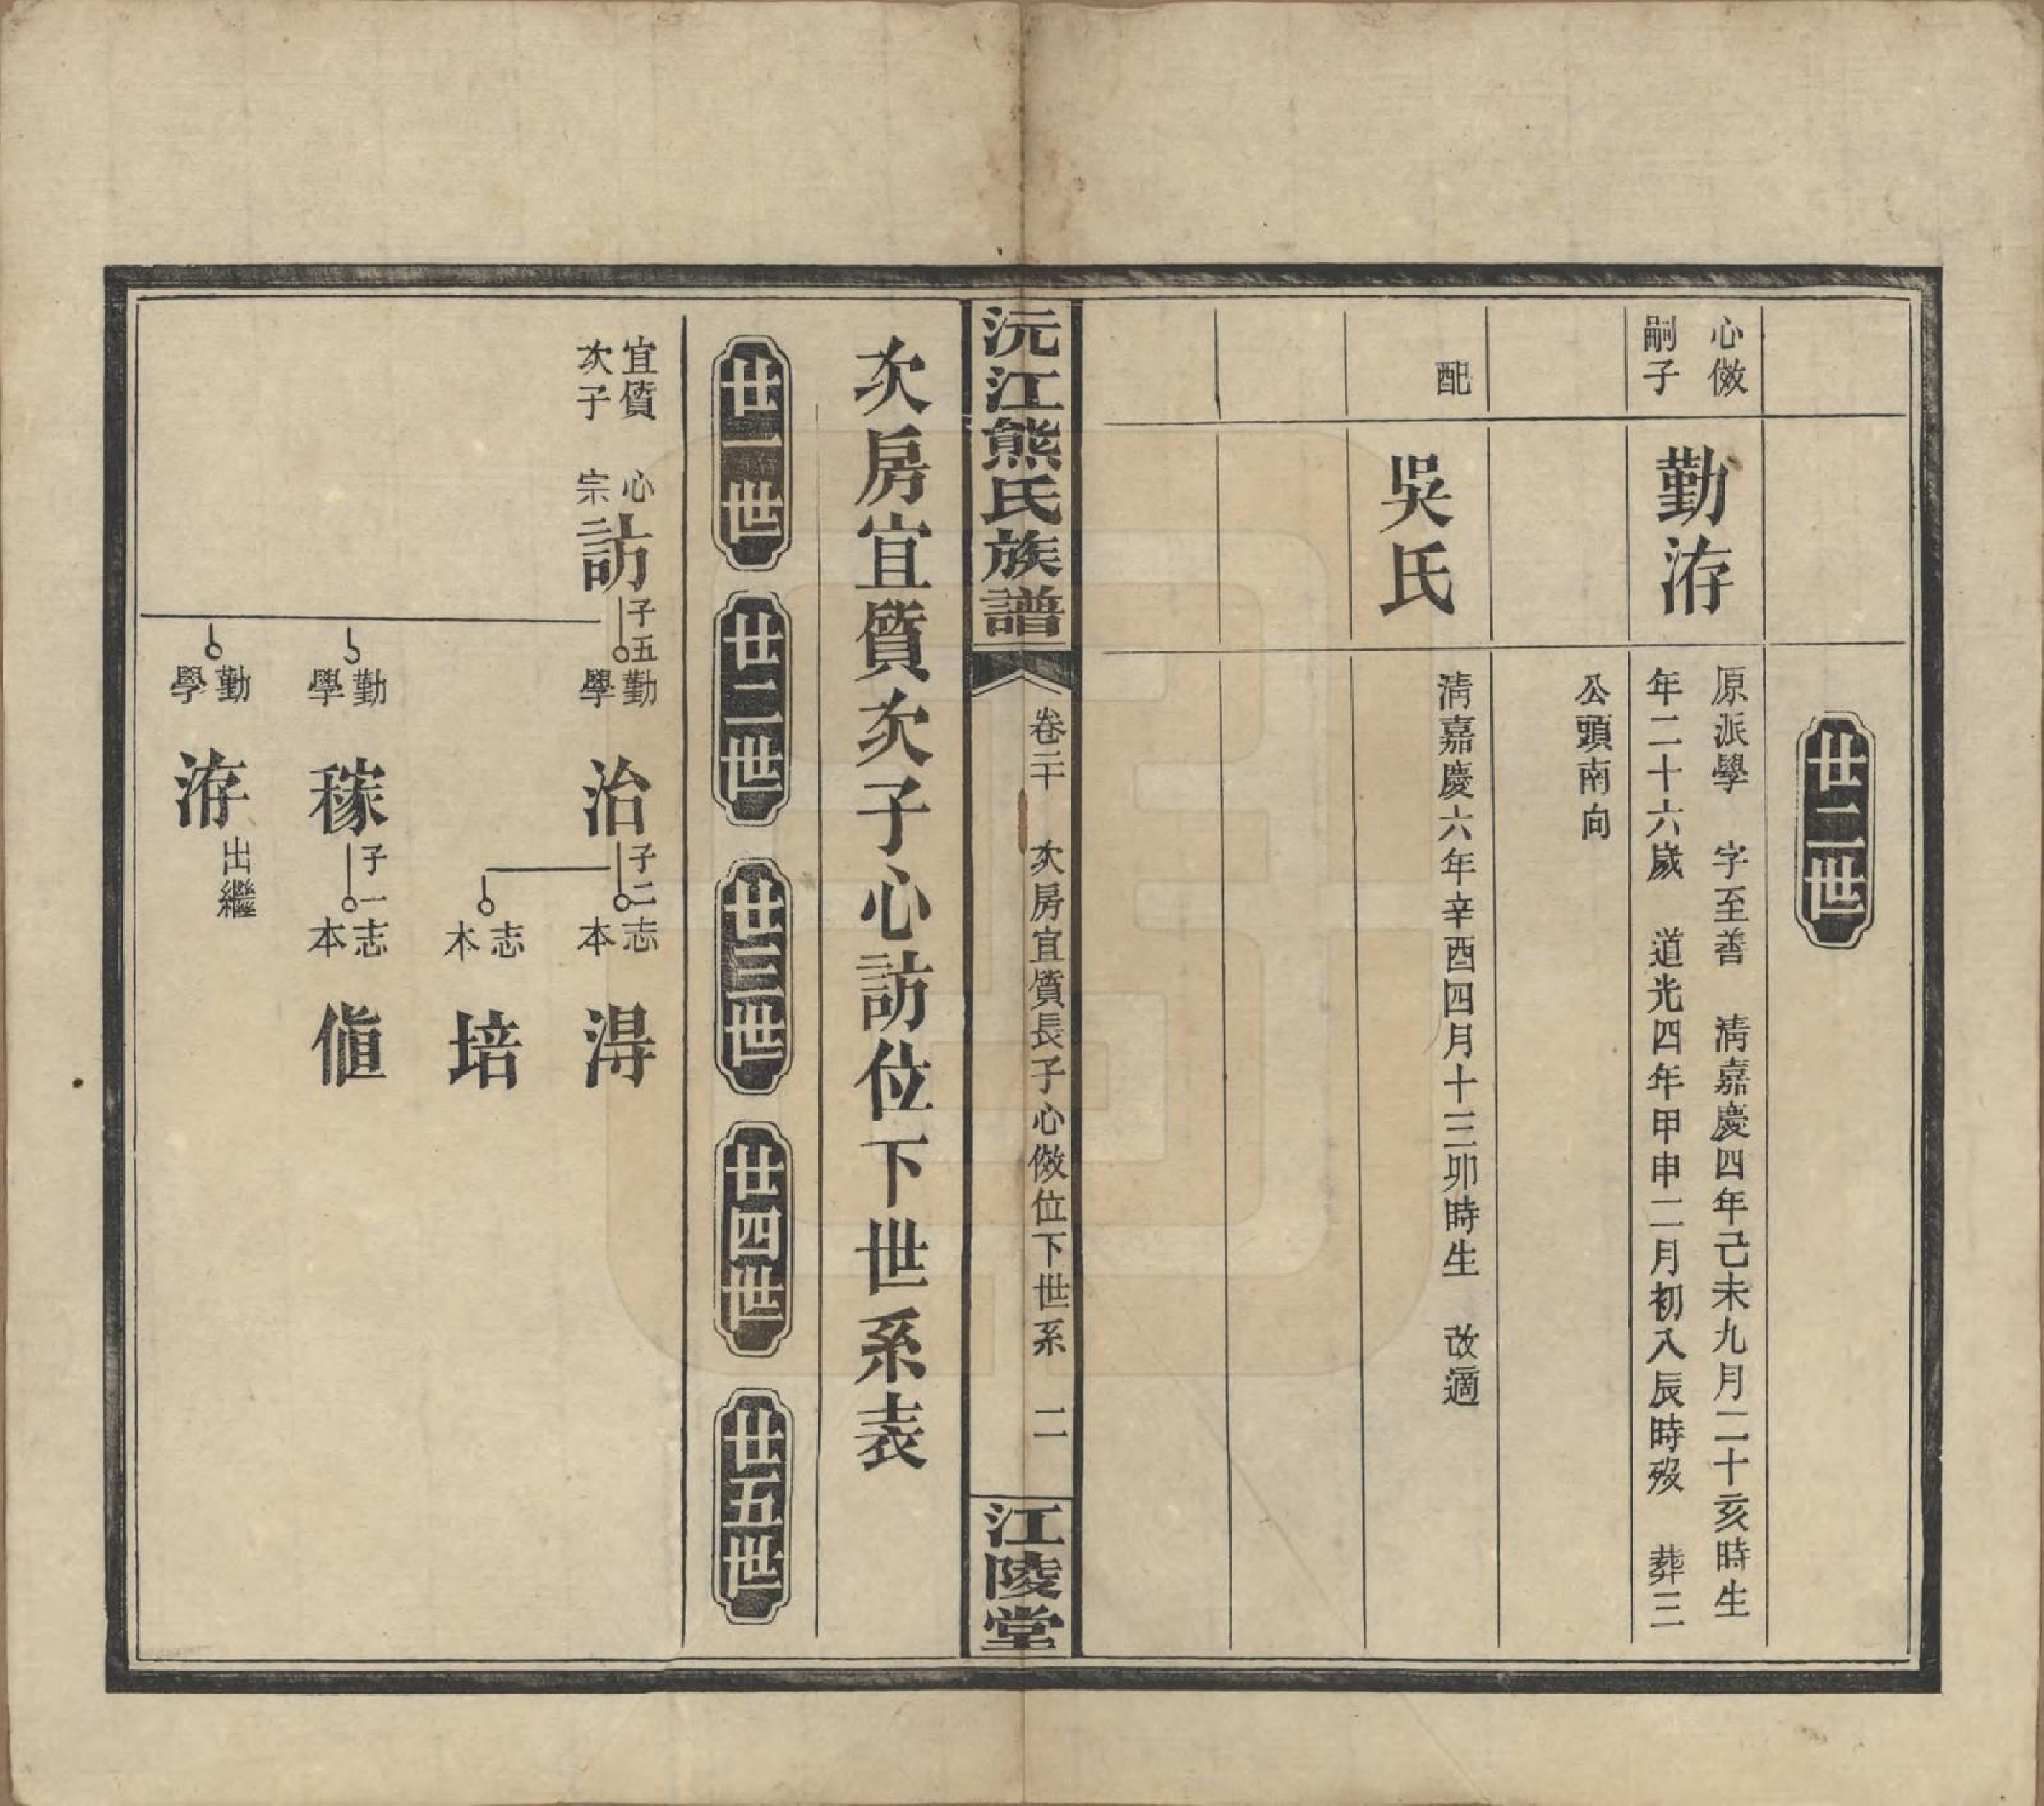 廿二世
心儌
嗣子
勤洊
原派學　字至善　清嘉慶四年己未九月二十亥時生
年二十六歲　道光四年甲申二月初八辰時歿　葬三
公頭南向
配
吳氏
清嘉慶六年辛酉四月十三卯時生　改適
沅江熊氏族譜
卷二十　次房宜質長子心儌位下世系　二
江陵堂
次房宜質次子心訪位下世系表
廿一世
廿二世
廿三世
廿四世
廿五世
宜質
次子
心
宗二
訪
子五
勤
學
治
子二
志
本
淂
志
木
培
勤
學
稼
子一
志
本
値
勤
學
洊
出繼